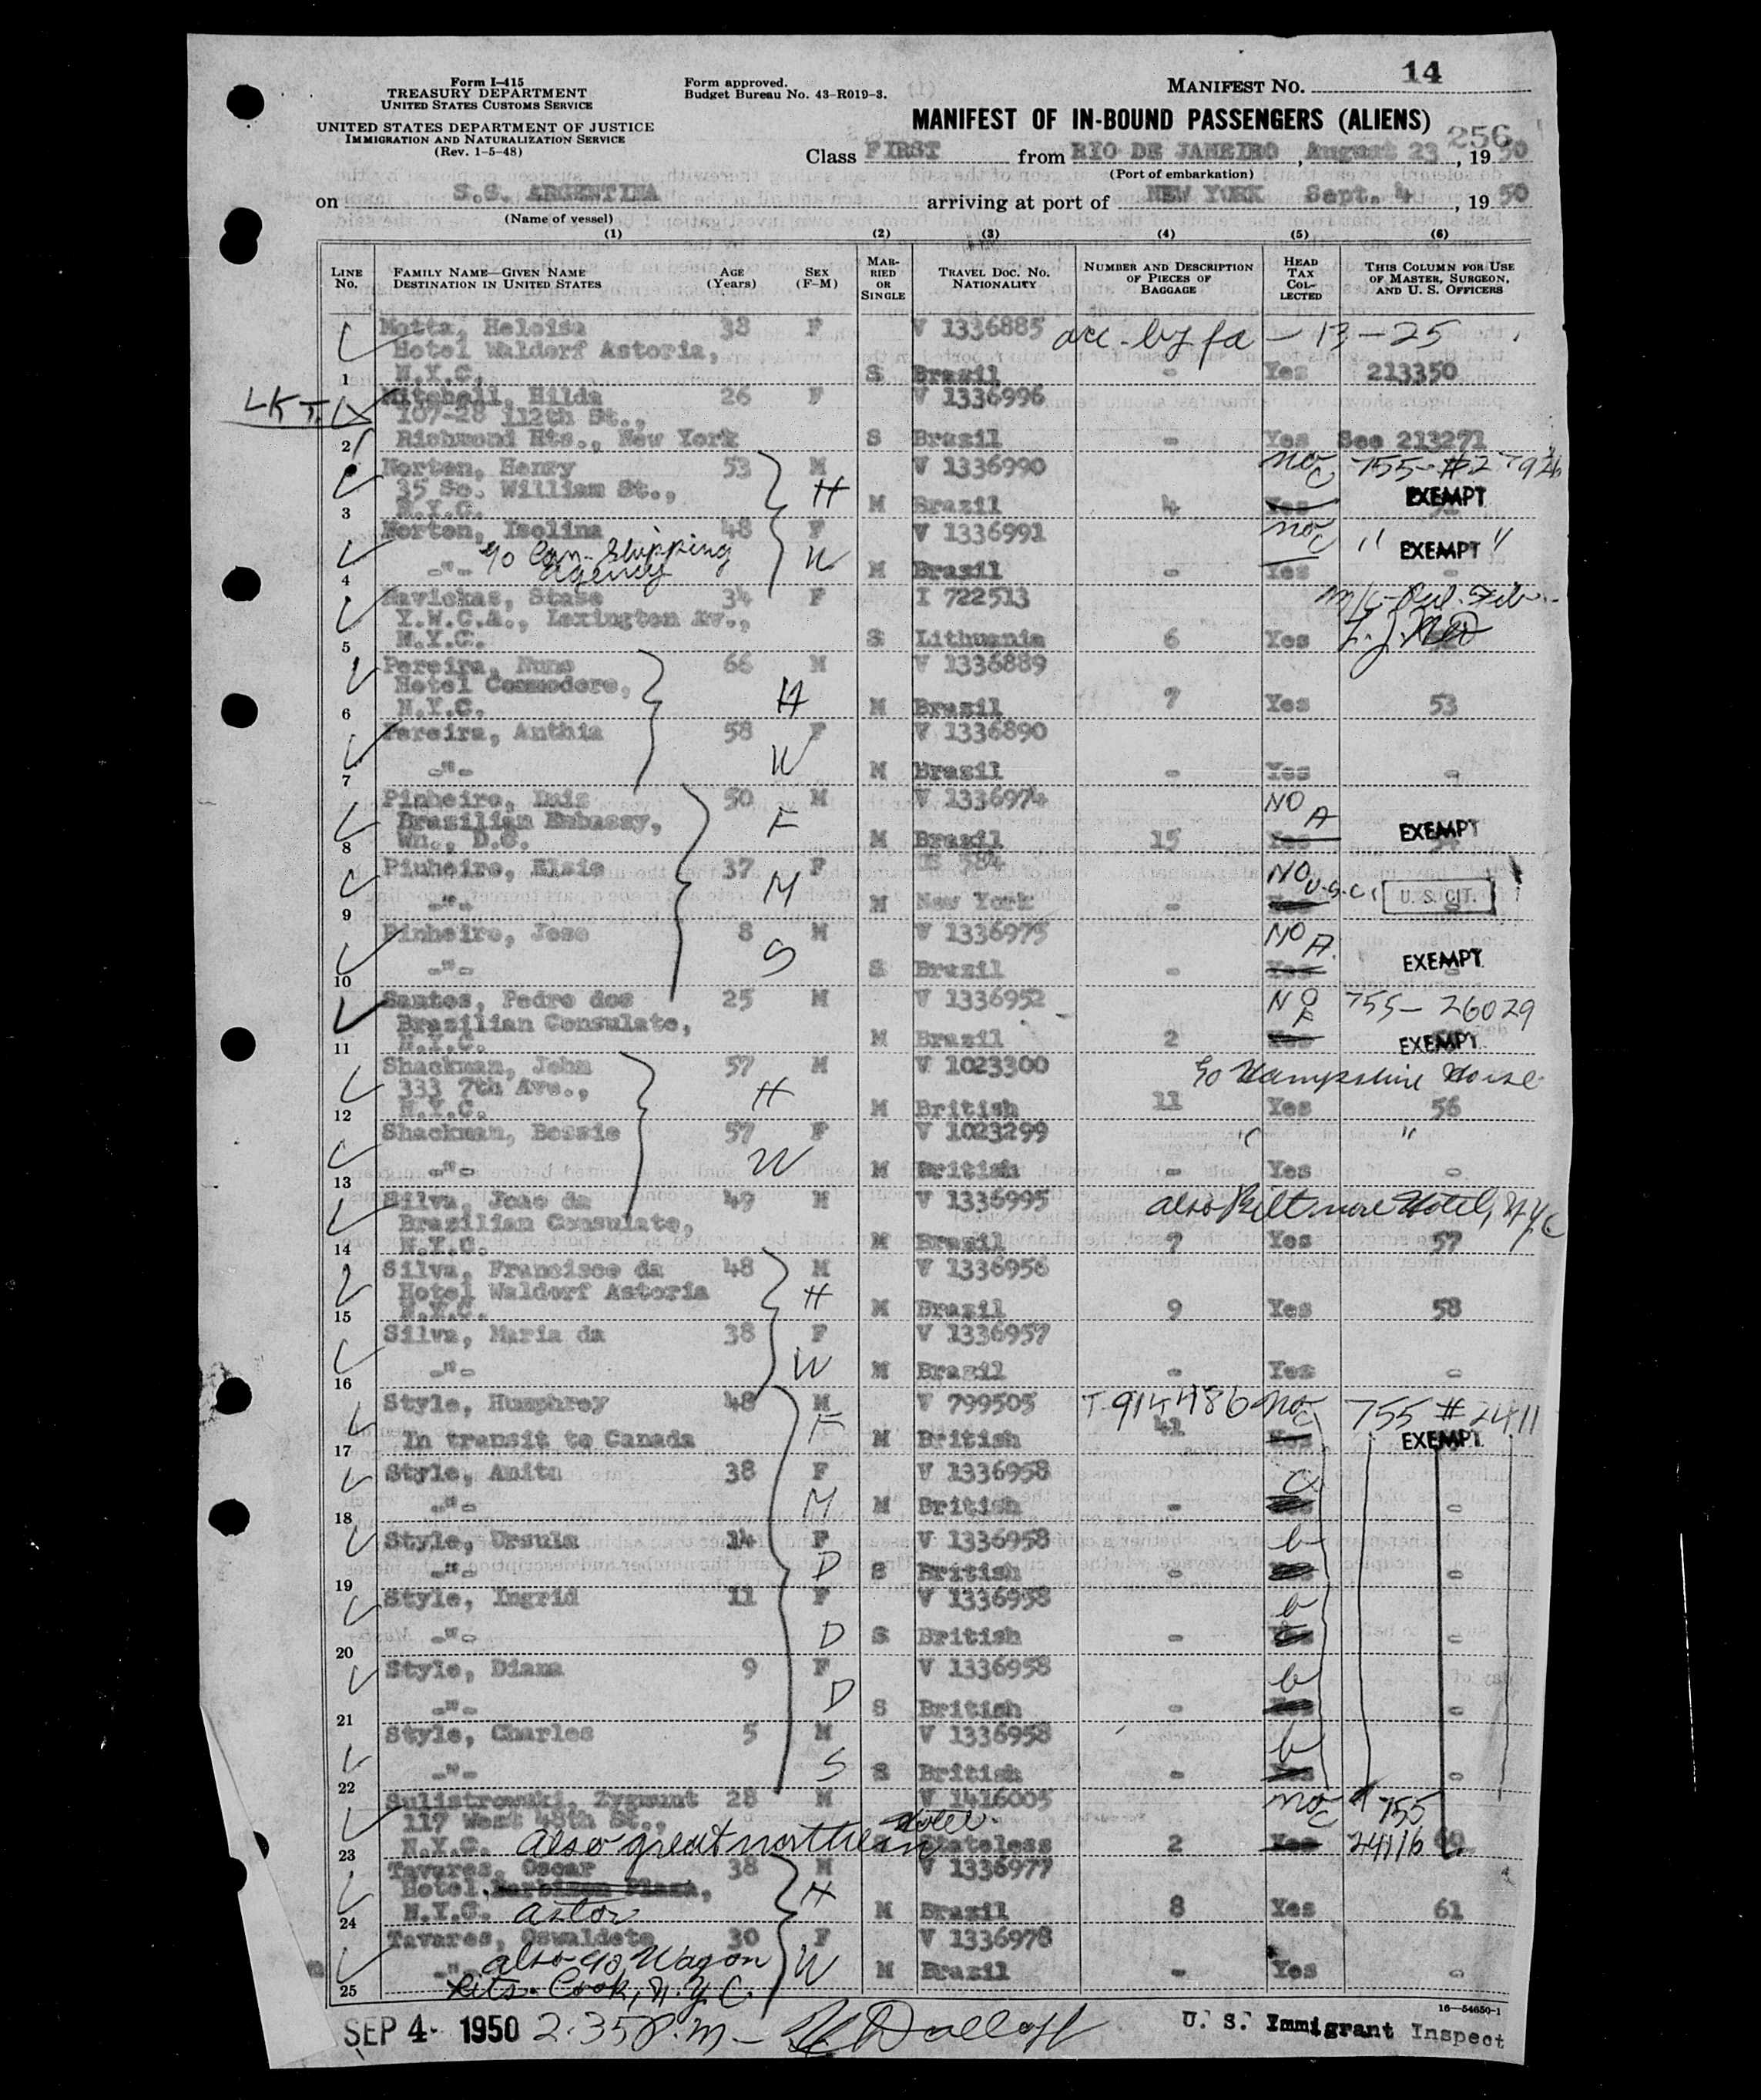 Form I-415
TREASURY DEPARTMENT
UNITED STATES CUSTOMS SERVICE
UNITED STATES DEPARTMENT OF JUSTICE
IMMIGRATION AND NATURALIZATION SERVICE
(Rev. 1-5-48)
Form approved.
Budget Bureau No. 43-R019-3.
(1)
MANIFEST NO. 14
MANIFEST OF IN-BOUND PASSENGERS (ALIENS)
256
Class FIRST from RIO DE JANEIRO, August 23, 1950
(Port of embarkation)
on S.S. ARGENTINA arriving at port of NEW YORK Sept. 4, 1950
(Name of vessel)
(1) (2) (3) (4) (5) (6)
LINE NO. FAMILY NAME—GIVEN NAME DESTINATION IN UNITED STATES AGE (Years) SEX (F-M) MARRIED OR SINGLE TRAVEL DOC. NO. NATIONALITY NUMBER AND DESCRIPTION OF PIECES OF BAGGAGE HEAD TAX COLLECTED THIS COLUMN FOR USE OF MASTER, SURGEON, AND U. S. OFFICERS
Motta, Heloisa 38 F V 1336885 acc. by fa - 13-25
Hotel Waldorf Astoria,
1 N.Y.C. S Brazil - Yes 213350
LKT
Mitchell, Hilda 26 F V 1336996
107-28 112th St.,
2 Richmond Hts., New York S Brazil - Yes See 213271
Norton, Henry 53 M V 1336990 no c 755-#27926
35 So. William St., H EXEMPT
3 N.Y.C. M Brazil 4 Yes
Norton, Isolina 48 F V 1336991 no c " EXEMPT "
c/o Com. Shipping W
4 -"- Agency M Brazil - Yes
Navickas, Stase 34 F I 722513
Y.W.C.A., Lexington Av.,
5 N.Y.C. S Lithuania 6 Yes
Pereira, Nuno 66 M V 1336889
Hotel Commodore, H
6 N.Y.C. M Brazil 7 Yes 53
Pereira, Anthia 58 F V 1336890
W
7 -"- M Brazil - Yes -
Pinheiro, Luis 50 M V 1336974 NO A
Brazilian Embassy, F EXEMPT
8 Wn., D.C. M Brazil 15 Yes
Pinheiro, Elsie 37 F 584 NO U.S.C.
M U. S. CIT.
9 -"- M New York - Yes
Pinheiro, Jose 8 M V 1336975 NO A.
S EXEMPT
10 -"- S Brazil - Yes
Santos, Pedro dos 25 M V 1336952 NO F 755-26029
Brazilian Consulate,
11 N.Y.C. M Brazil 2 Yes EXEMPT
Shackman, John 57 M V 1023300 c/o Hampshire House
333 7th Ave., H
12 N.Y.C. M British 11 Yes 56
Shackman, Bessie 57 F V 1023299 " "
W
13 -"- M British - Yes -
Silva, Joao da 49 M V 1336995 also Biltmore Hotel, N.Y.C
Brazilian Consulate,
14 N.Y.C. M Brazil 7 Yes 57
Silva, Francisco da 48 M V 1336956
Hotel Waldorf Astoria H
15 N.Y.C. M Brazil 9 Yes 58
Silva, Maria da 38 F V 1336957
W
16 -"- M Brazil - Yes -
Style, Humphrey 48 M V 799505 T-914486 no c 755 #2411
F 41
17 In transit to Canada M British Yes EXEMPT
Style, Anita 38 F V 1336958 a
18 -"- M M British - Yes -
Style, Ursula 14 F V 1336958 b
19 -"- D S British - Yes -
Style, Ingrid 11 F V 1336958 b
20 -"- D S British - Yes -
Style, Diana 9 F V 1336958 b
21 -"- D S British - Yes -
Style, Charles 5 M V 1336958 b
22 -"- S S British - Yes -
Sulistrowski, Zygmunt 28 M V 1416005 no c # 755
117 West 48th St.,
23 N.Y.C. also great northern Hotel. S Stateless 2 Yes 24116 60
Tavares, Oscar 38 M V 1336977
Hotel Barbizon Plaza, H
24 N.Y.C. Astor M Brazil 8 Yes 61
Tavares, Oswaldete 30 F V 1336978
also c/o Wagon W
25 -"- Lits. Cook, N.Y.C. M Brazil - Yes -
16-54650-1
SEP 4- 1950 2.35 P.m-
U. S. Immigrant Inspect